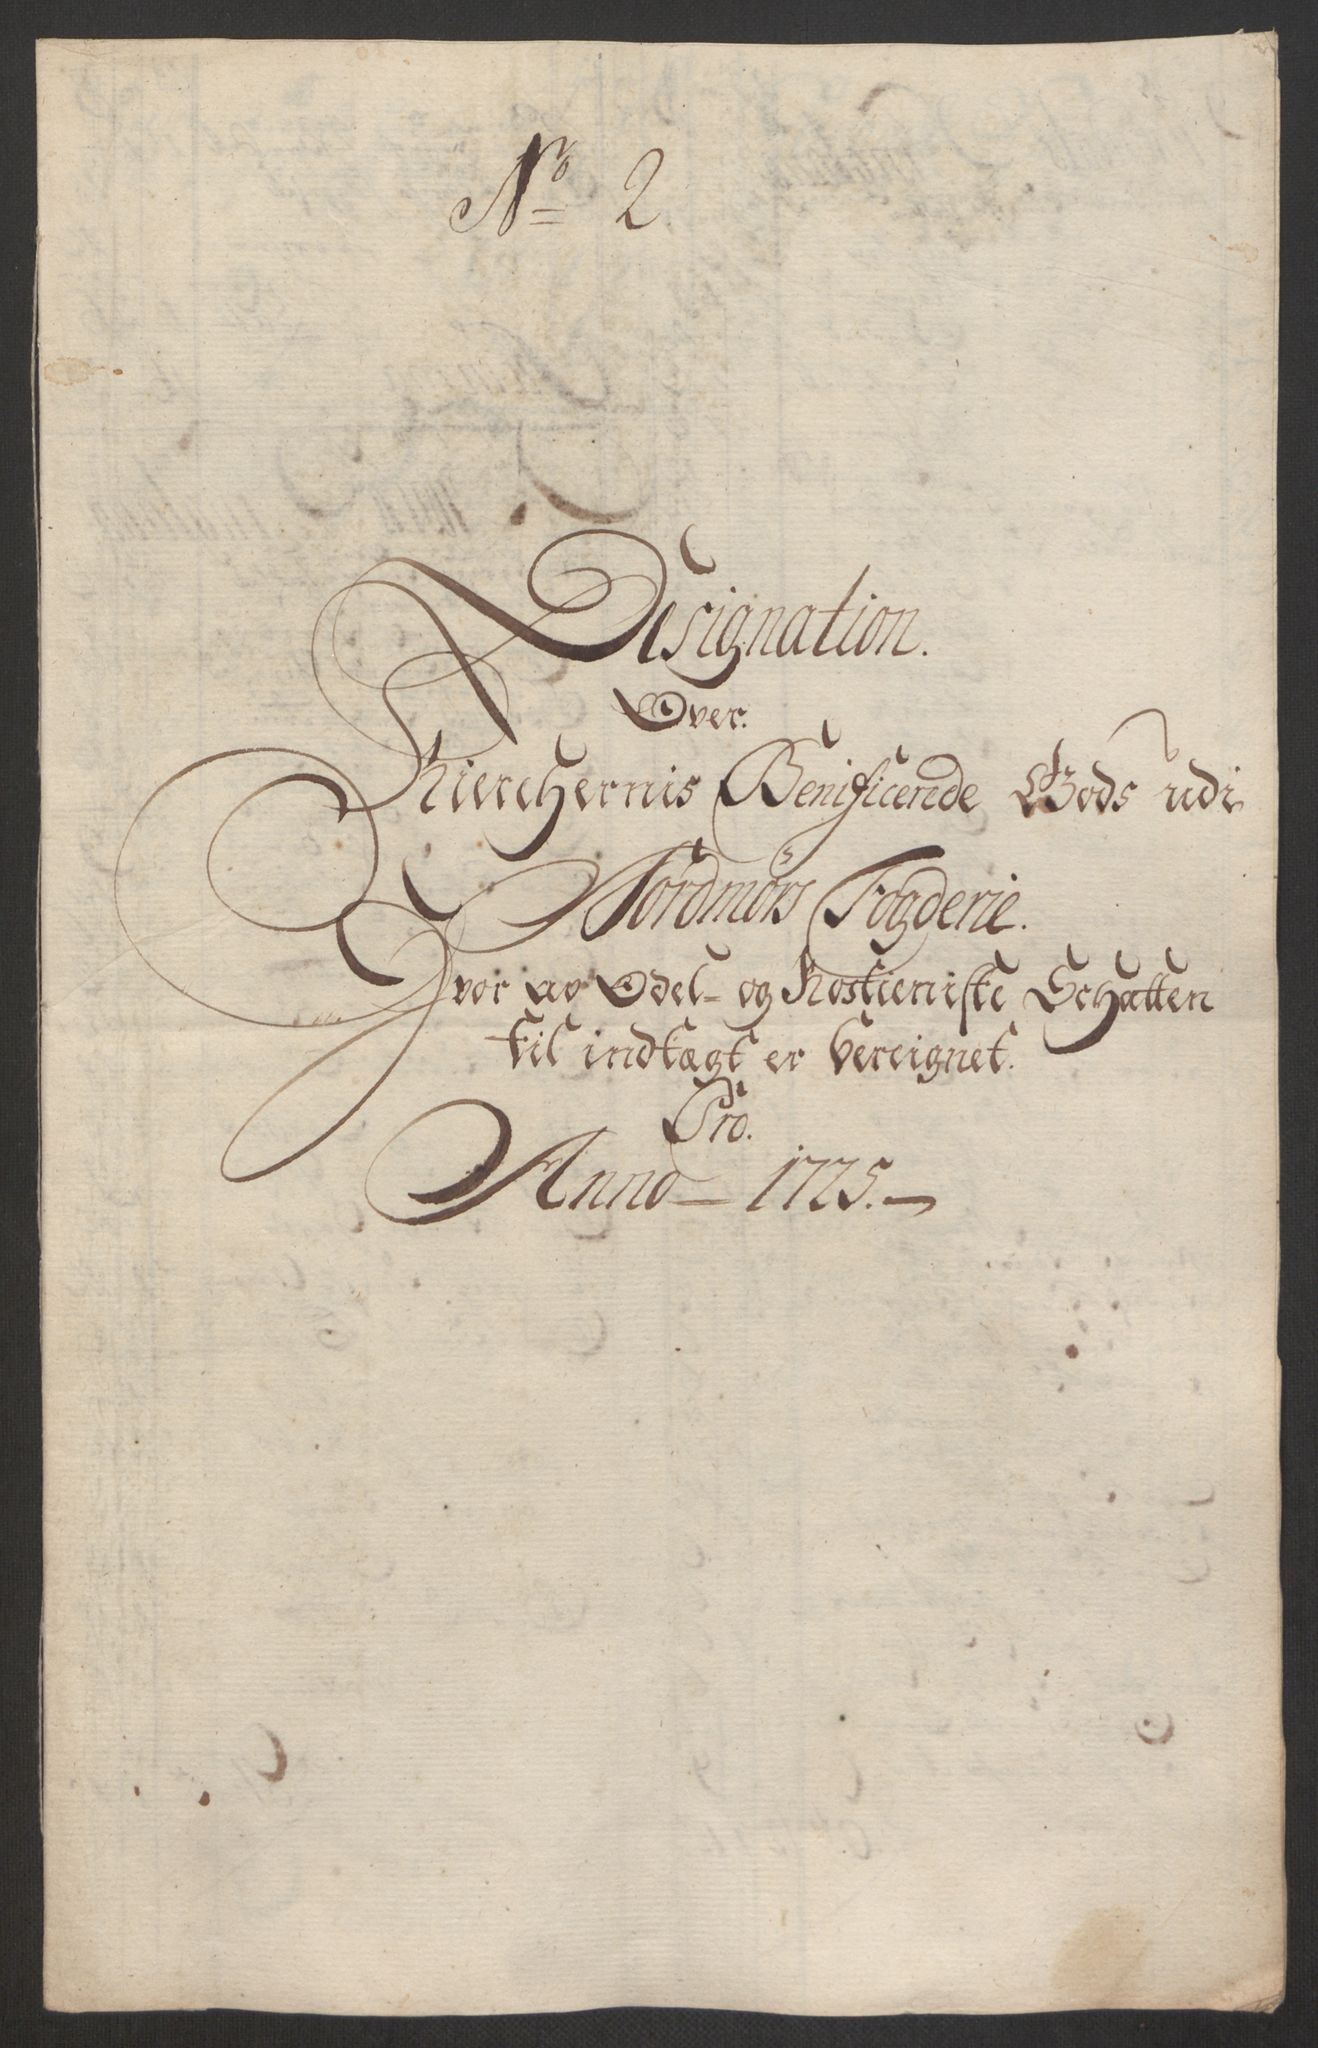 No 2.
Designation.
Over.
Kierchernis Benificerede Gods udi
Nordmørs Fogderie.
Hvor av Odel- og Rostieniste Schatten
til indtægt er bereignet.
Pro.
Anno - 1725. -